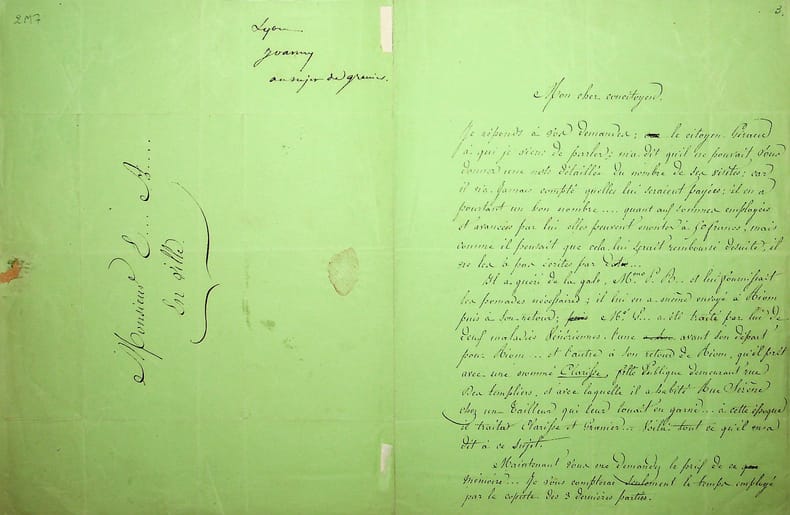 2M7
Lyon
Joanny
au sujet de granier.
Monsieur E.... B....
En ville.
3.
Mon cher concitoyen.
Je réponds à vos demandes; le citoyen Giraud
à qui je viens de parler; m'a dit qu'il ne pouvait vous
donner une note détaillée du nombre de ses visites; car
il n'a jamais compté quelles lui seraient payées; il en a
pourtant un bon nombre.... quant aux sommes employées
et avancées par lui elles peuvent monter à francs, mais
comme il pensait que cela lui serait remboursé desuite, il
ne les a pas écrites par
Il a guéri de la gale, Mme P. B... et lui fournissait
les pomades nécessaires; il lui en a même envoyé à Riom
puis à son retour; Mr. G... a été traité par lui de
deux maladies Vénériennes. l'une avant son départ
pour Riom... et l'autre à son retour de Riom, qu'il prit
avec une nommé Clarisse, fille publique demeurant rue
Des templiers, et avec laquelle il a habité Rue Sirène
chez un tailleur qui leur louait en garni... à cette époque
il traita Clarisse et Granier... Voilà tout ce qu'il m'a
dit à ce sujet.
Maintenant vous me demandez le prix de ce
mémoire... Je vous compterai seulement le temps employé
par le copiste des 3 dernières parties.